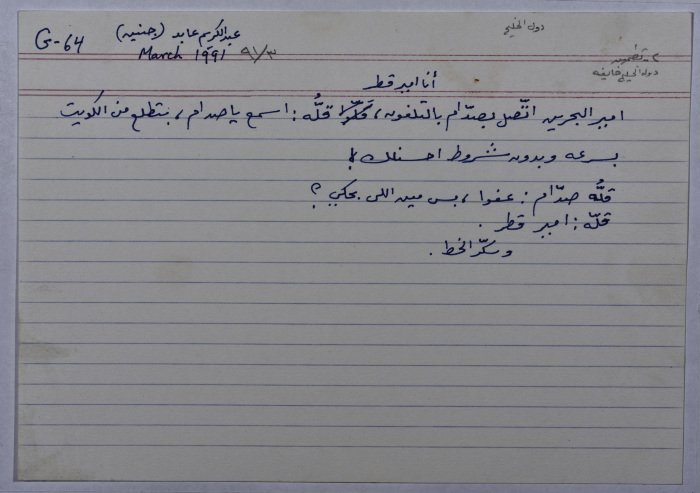 دول الخليج
G-64
عبدالكريم عابد (جنين)
March 1991 ٩١/٣
٢- تطمين
دول الخليج خايفه
أنا امير قطر
امير البحرين اتّصل بصدّام بالتلفون، قلُّه: اسمع يا صدام، بتطلع من الكويت
بسرعه وبدون شروط احسنلك!
قلُّه صدّام: عفوا، بس مين اللي بحكي؟
قلّه: امير قطر.
وسكّر الخط.